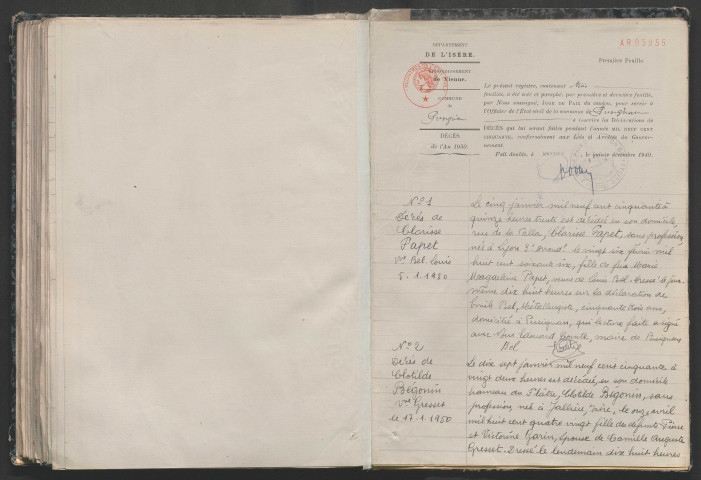 DÉPARTEMENT
DE L'ISÈRE.
ARRONDISSEMENT
de Vienne.
COMMUNE
de
DÉCÈS
de l'An 1950.
AR 03955
Première Feuille
Le présent registre, contenant
feuilles, a été coté et paraphé, par première et dernière feuille,
par Nous soussigné, Juge de Paix du canton, pour servir à
l'Officier de l'État civil de la commune de Pusignan
à inscrire les Déclarations de
DÉCÈS qui lui seront faites pendant l'année MIL NEUF CENT
CINQUANTE, conformément aux Lois et Arrêtés du Gouver-
nement.
Fait double, à le quinze décembre 1949.
N° 1
Décès de
Clarisse
Papet
Vve Bel Louis
5. 1. 1950
Le cinq janvier mil neuf cent cinquante à
quinze heures trente est décédée en son domicile
rue de la Clarisse Papet, sans profession
née à le vingt six février mil
huit cent soixante six, fille de feue Marie
Magdeleine Papet, veuve de Louis Bel. Dressé le jour
même dix huit heures sur la déclaration de
Emile Bel, cinquante trois ans,
domicilié à Pusignan, qui lecture faite a signé
avec Nous Edouard maire de Pusignan
Bel
N° 2
Décès de
Clotilde
Bégonin
Vve Gresset
le 17. 1. 1950
Le dix sept janvier mil neuf cent cinquante à
vingt deux heures est décédée, en son domicile
hameau du Plâtre, Clotilde Bégonin, sans
profession, née à Jallieu, Isère, le onze avril
mil huit cent quatre vingt fille des défunts Pierre
et Victorine Garin, épouse de Camille Auguste
Gresset. Dressé le lendemain dix huit heures